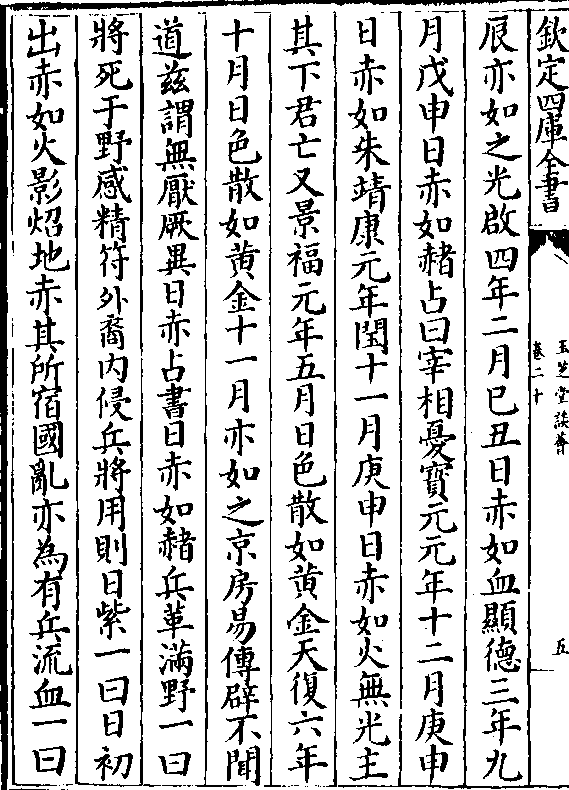 欽定四庫全書
玉芝堂談薈
卷二十
五
辰亦如之光啟四年二月已丑日赤如血顯德三年九
月戊申日赤如赭占曰宰相憂寳元元年十二月庚申
日赤如朱靖康元年閏十一月庚申日赤如火無光主
其下君亡又景福元年五月日色散如黃金天復六年
十月日色散如黃金十一月亦如之京房易傳辟不聞
道兹謂無厭厥異日赤占書日赤如赭兵革滿野一曰
將死于野感精符外裔内侵兵將用則日紫一曰日初
出赤如火影炤地赤其所宿國亂亦為有兵流血一曰